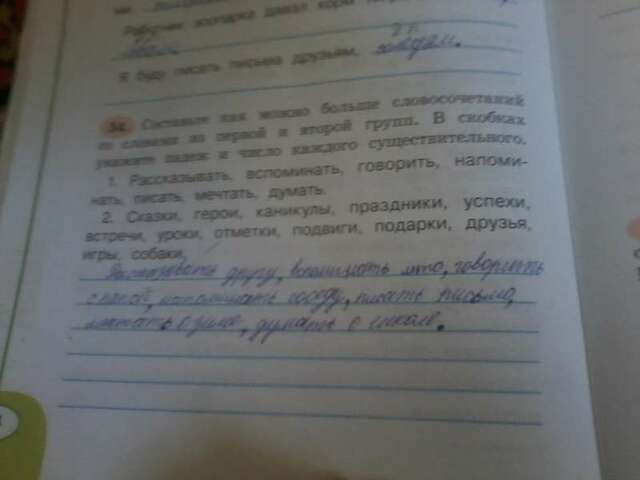 Рабочий зоопарка давал корм
Я буду писать письма друзьям,
34. Составьте как можно больше словосочетаний
со словами из первой и второй групп. В скобках
укажите падеж и число каждого существительного.
1. Рассказывать, вспоминать, говорить, напоми-
нать, писать, мечтать, думать.
2. Сказки, герои, каникулы, праздники, успехи,
встречи, уроки, отметки, подвиги, подарки, друзья,
игры, собаки.
Рассказывать другу, вспоминать лето, говорить
с папой, напоминать соседу, писать письмо,
мечтать о зиме, думать о школе.